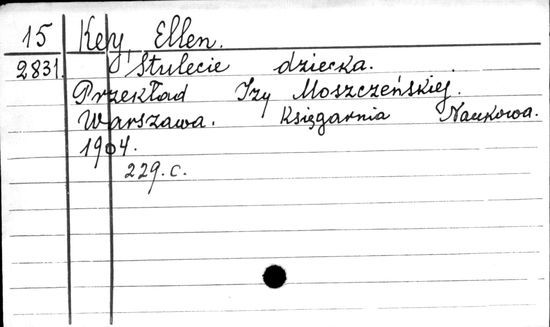 15 Key, Ellen.
2831. Stulecie dziecka.
Przekład Izy Moszczeńskiej.
Warszawa. Księgarnia Naukowa.
1904.
229. c.